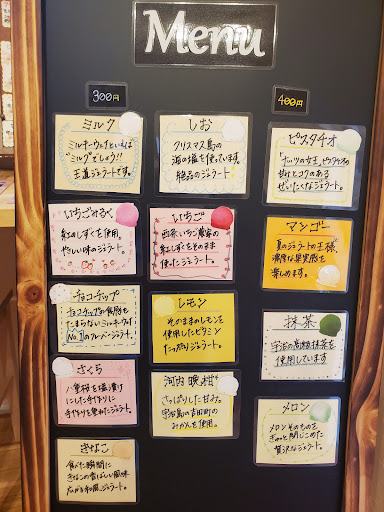 Menu
300円
ミルク
ミルキーウェイといえば
"ミルク"でしょう!!
王道ジェラートです。
いちごみるく
紅のしずくを使用。
やさしい味のジェラート。
チョコチップ
チョコチップの食感も
たまらないミルキーウェイ
No.1のフレーバージェラート。
さくら
八重桜を塩漬け
にした手作りに
手作りを重ねたジェラート。
きなこ
食べた瞬間に
きなこの香ばしい風味
広がる和風ジェラート。
しお
クリスマス島の
海の塩を使っています。
絶品のジェラート
いちご
西条いちご農家の
紅しずくをそのまま
使ったジェラート。
レモン
そのままのレモンを
使用したビタミン
たっぷりジェラート。
河内晩柑
さっぱりした甘みと
宇和島の吉田町の
みかんを使用。
400円
ピスタチオ
ナッツの女王、ピスタチオの
甘みとコクのある
ぜいたくなジェラート。
マンゴー
夏のジェラートの王様、
濃厚な果実感を
楽しめます。
抹茶
宇治の高級抹茶を
使用しています
メロン
メロンそのものを
ぎゅっと閉じこめた
贅沢なジェラート。